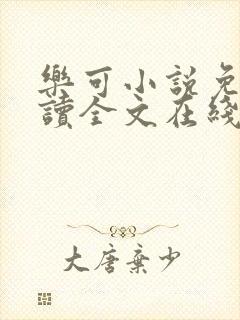 樂可小說免
讀全文在綫
大唐棄少